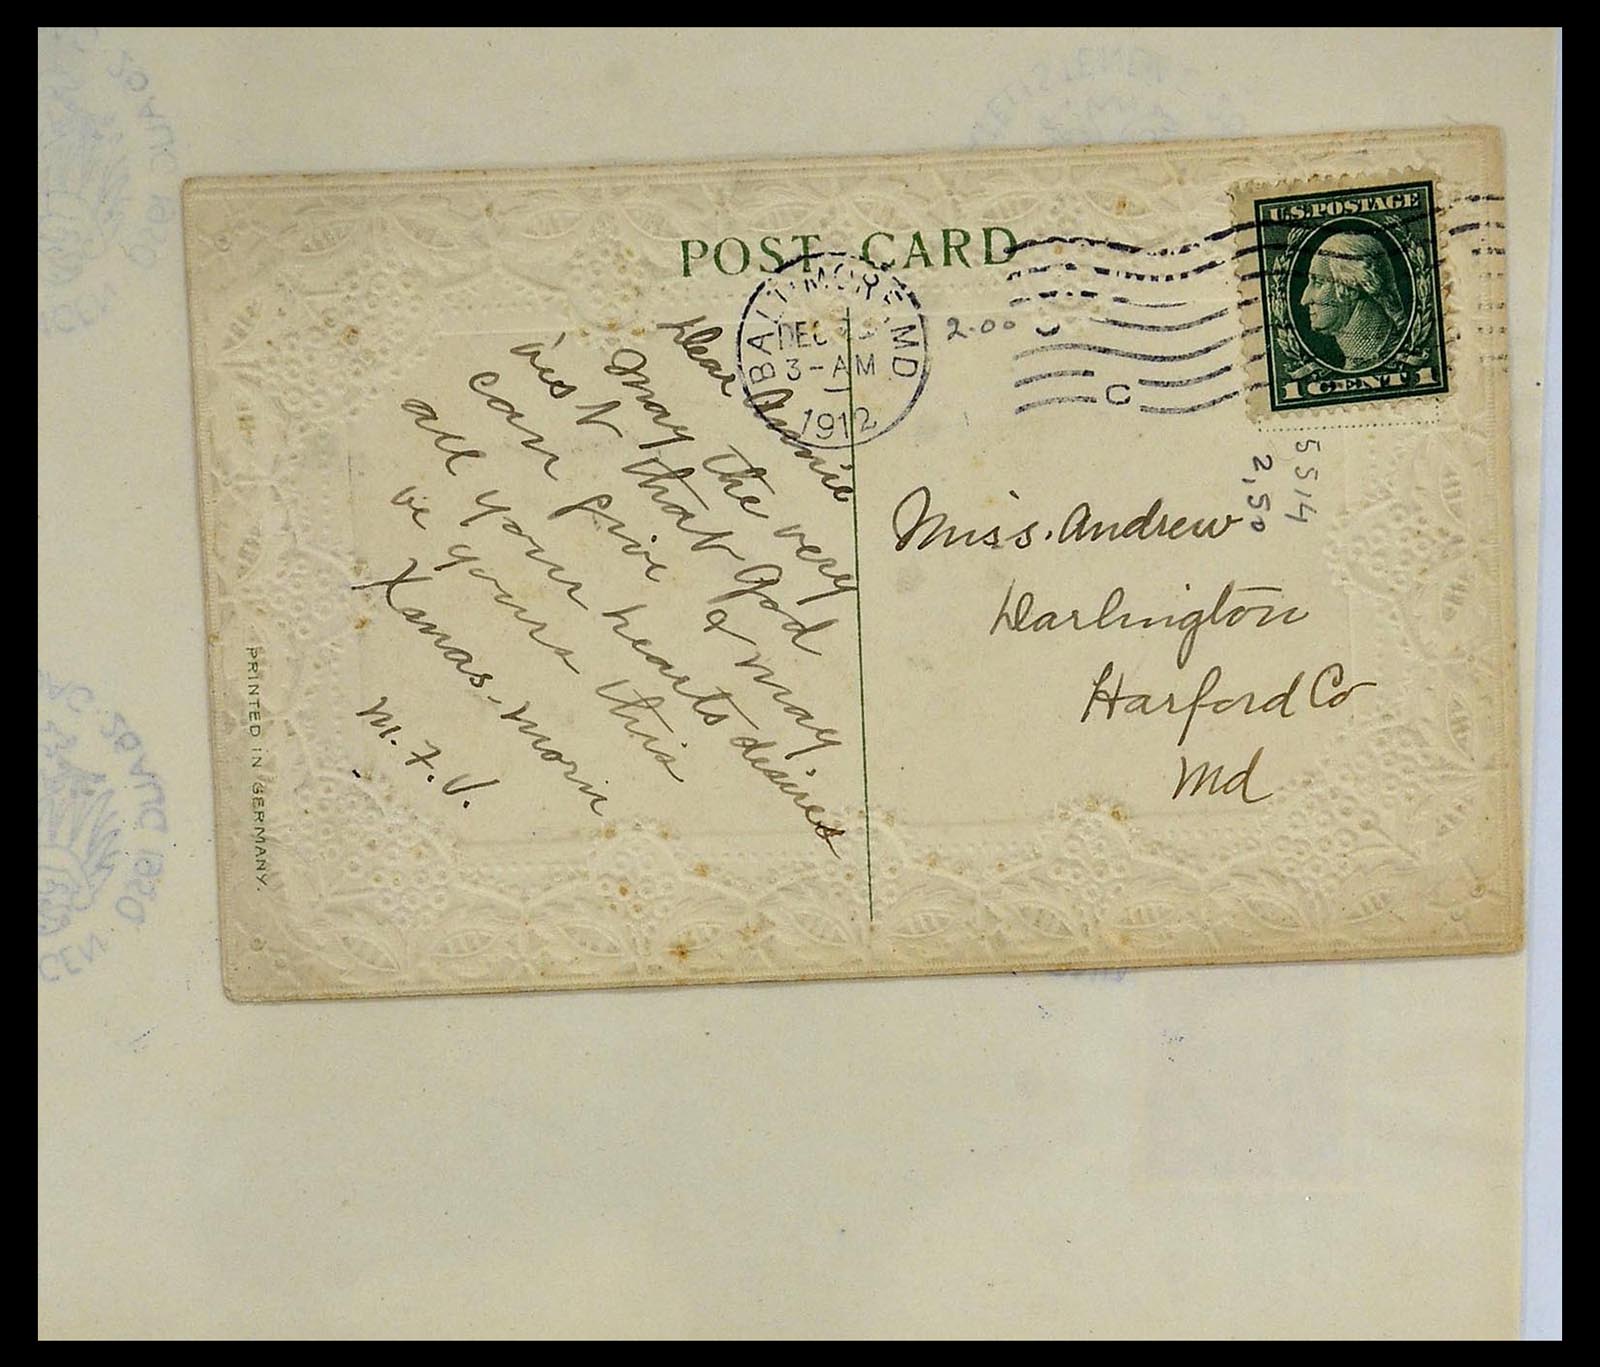 POST CARD
BALTIMORE, MD
DEC
3-AM
1912
C
U.S. POSTAGE
1 CENTS 1
2.00
5514
2.50
Dear Annie
May the very
best that God
can give & may
all your hearts desires
be yours this
Xmas-morn
M. F. V.
Miss. Andrew
Darlington
Harford Co
Md
PRINTED IN GERMANY.
20 AUG 1980
GEN